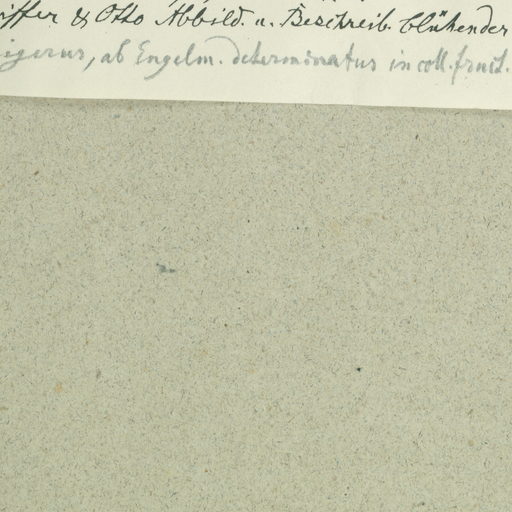 iffer & Otto Abbild. u. Beschreib. blühender
igerus, ab Engelm. determinatus in coll. fruct.